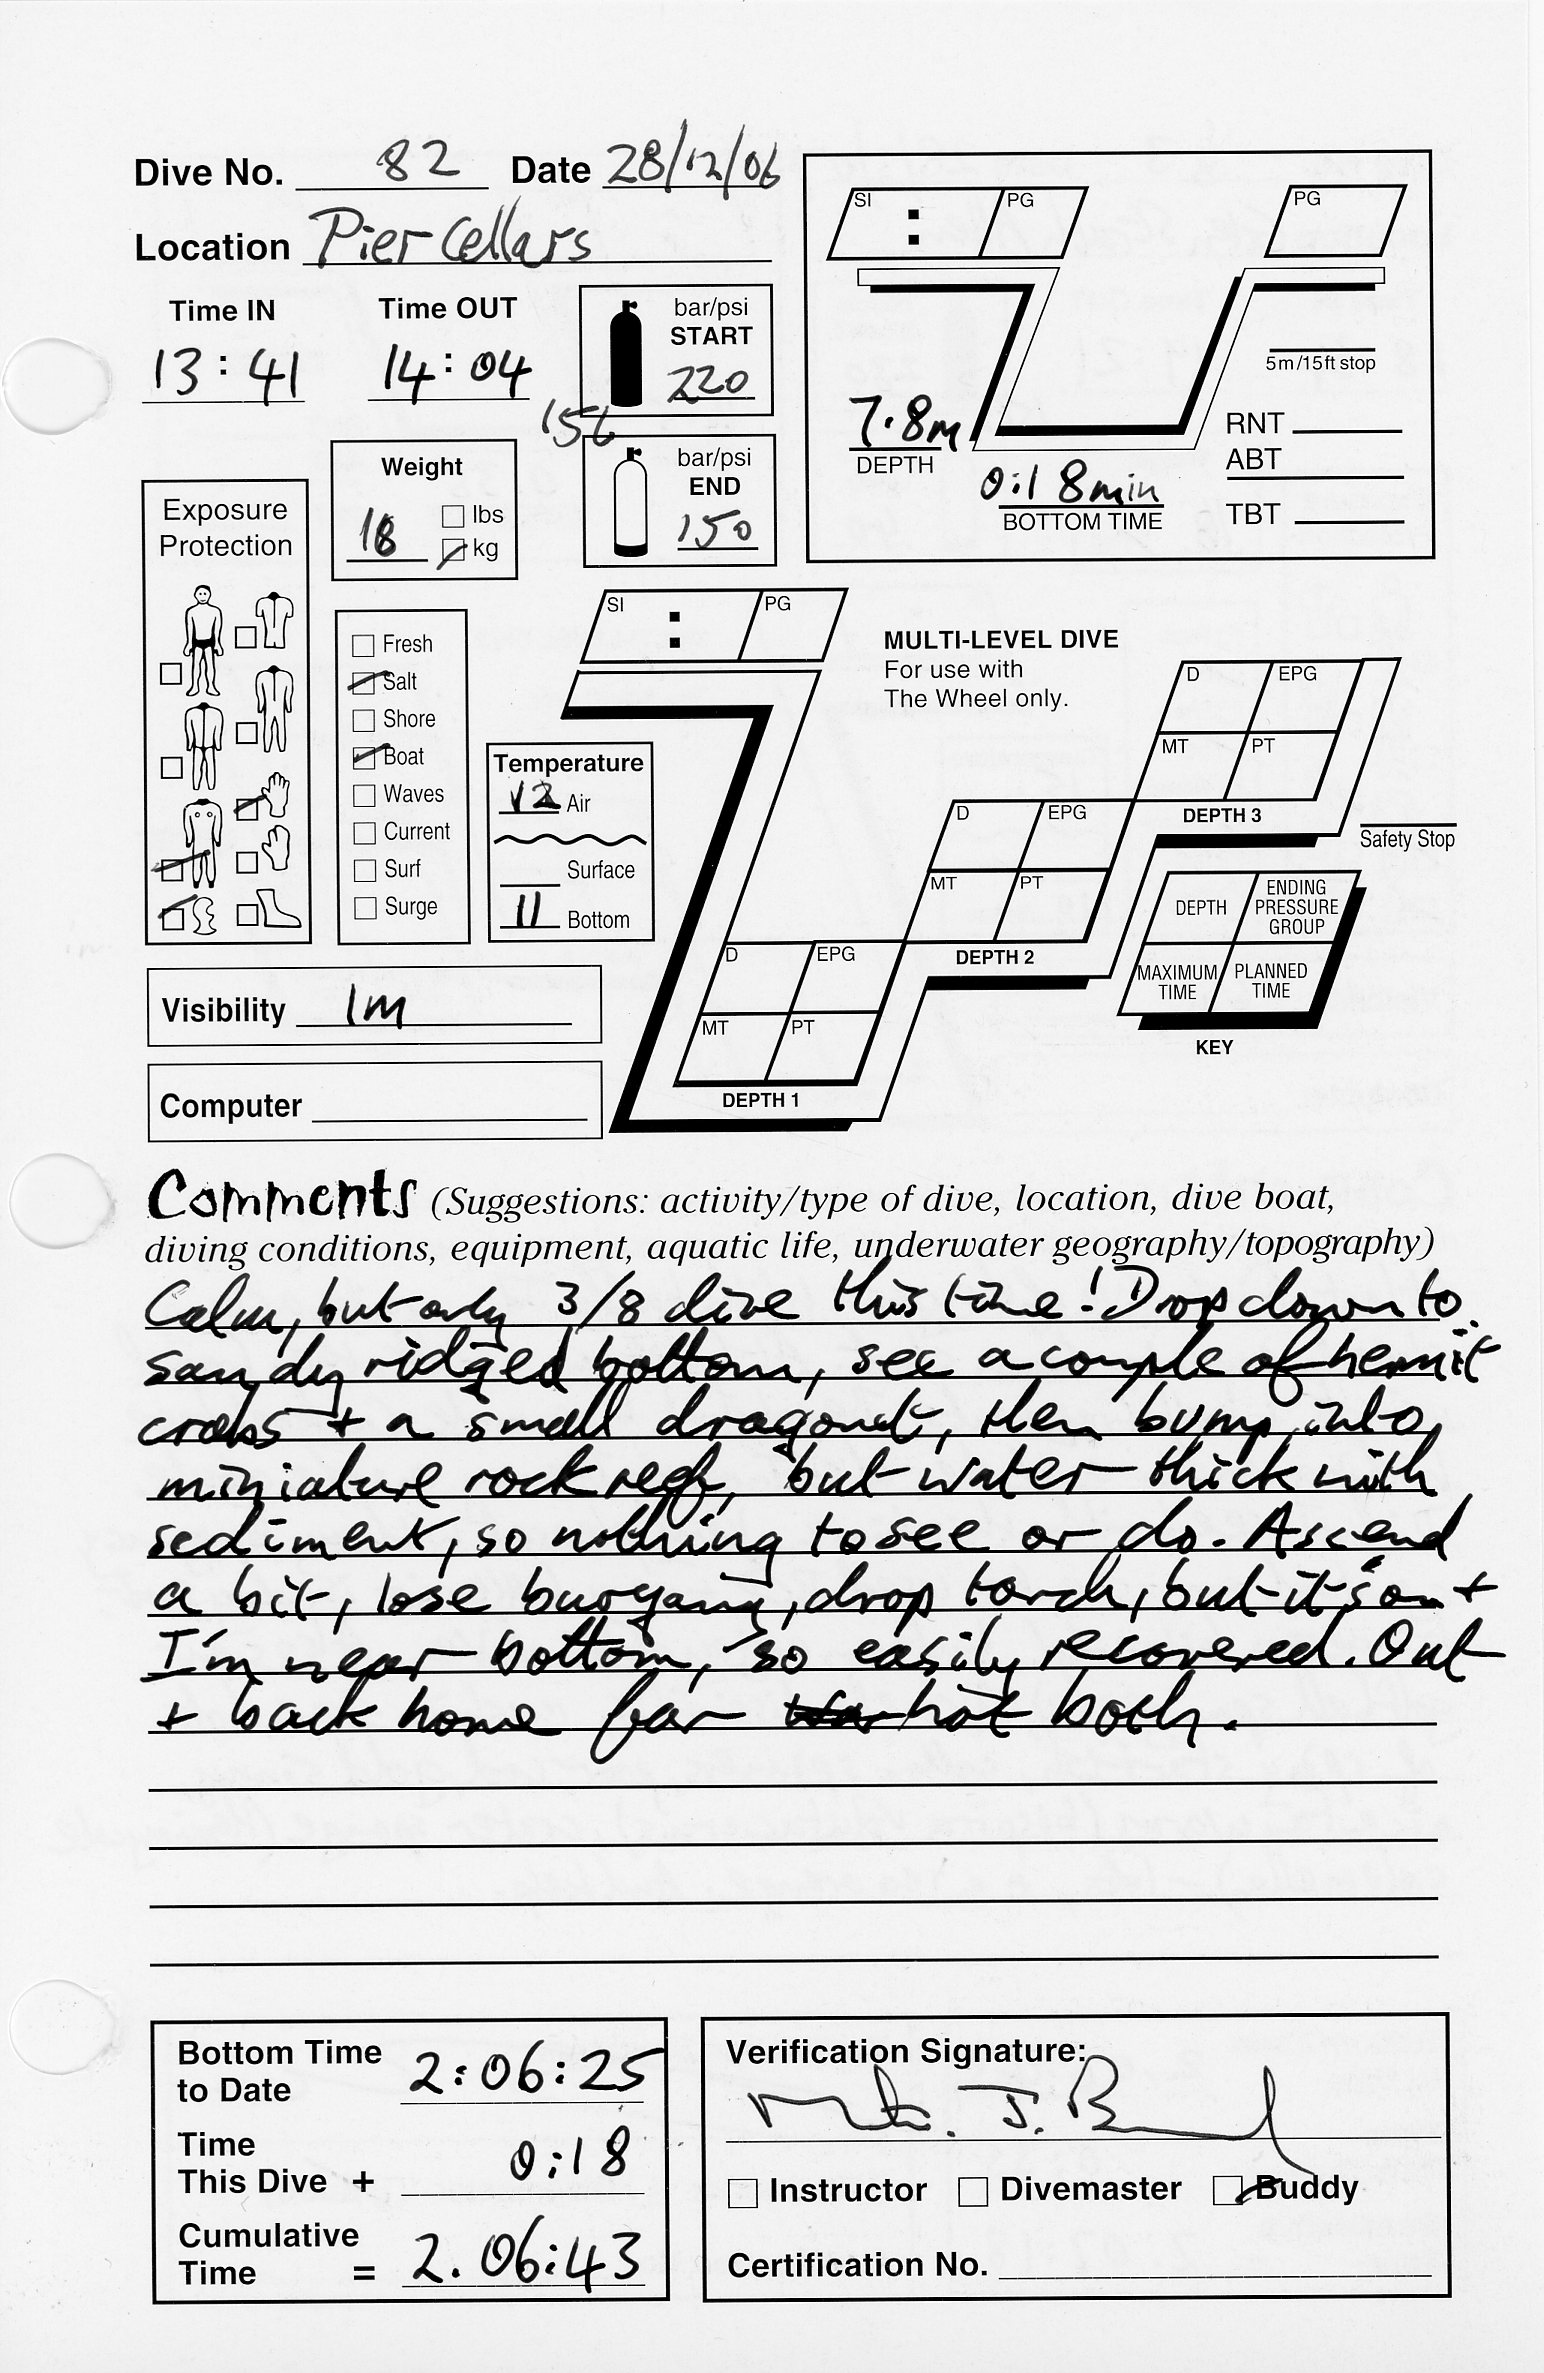 Dive No. 82 Date 28/12/06
Location Pier Cellars
Time IN Time OUT
13:41 14:04
bar/psi
START
220
156
bar/psi
END
150
Weight
18 lbs
kg
Exposure
Protection
Fresh
Salt
Shore
Boat
Waves
Current
Surf
Surge
Temperature
12 Air
Surface
11 Bottom
Visibility 1m
Computer
SI : PG
PG
5m/15ft stop
7.8m
DEPTH
0:18min
BOTTOM TIME
RNT
ABT
TBT
SI : PG
MULTI-LEVEL DIVE
For use with
The Wheel only.
D EPG
MT PT
DEPTH 3
D EPG
MT PT
DEPTH 2
D EPG
MT PT
DEPTH 1
Safety Stop
DEPTH
ENDING
PRESSURE
GROUP
MAXIMUM
TIME
PLANNED
TIME
KEY
Comments (Suggestions: activity/type of dive, location, dive boat,
diving conditions, equipment, aquatic life, underwater geography/topography)
Calm, but only 3/8 dive this time! Drop down to
sandy ridged bottom, see a couple of hermit
crabs + a small dragonet, then bump into
miniature rock reef, but water thick with
sediment, so nothing to see or do. Ascend
a bit, lose buoyancy, drop torch, but it's on +
I'm near bottom, so easily recovered. Out
+ back home for hot bath.
Bottom Time
to Date 2:06:25
Time
This Dive + 0:18
Cumulative
Time = 2.06:43
Verification Signature:
J.
Instructor Divemaster Buddy
Certification No.